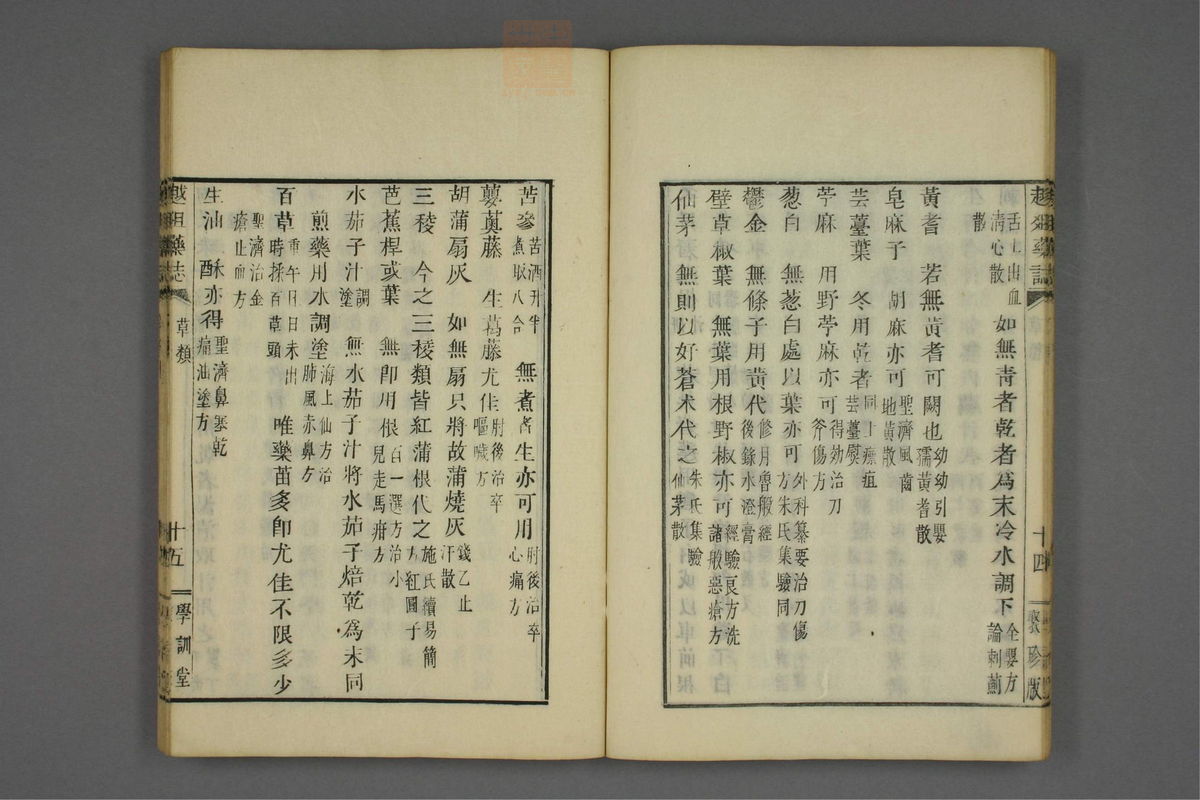 舌上出血清心散 如無靑者乾者爲末冷水調下 全嬰方論刺薊散
黃耆 若無黃耆可闕也 幼幼引嬰孺黃耆散
皂麻子 胡麻亦可 聖濟風齒地黃散
芸薹葉 冬用乾者 同上瘭疽芸薹熨
苧麻 用野苧麻亦可 得効治刀斧傷方
葱白 無葱白處以葉亦可 外科纂要治刀傷方朱氏集驗同
鬱金 無條子用黃代 修月魯般經後錄水澄膏
壁草椒葉 無葉用根野椒亦可 經驗良方洗諸般惡瘡方
仙茅 無則以好蒼朮代之 朱氏集驗仙茅散
越俎藥誌
十四
聚珍版
苦參 苦酒升半煮取八合 無煮者生亦可用 肘後治卒心痛方
蘡薁藤 生葛藤尤佳 肘後治卒嘔噦方
胡蒲扇灰 如無扇只將故蒲燒灰 錢乙止汗散
三稜 今之三稜類皆紅蒲根代之 施氏續易簡方紅圓子
芭蕉桿或葉 無卽用根 百一選方治小兒走馬疳方
水茄子汁調塗 無水茄子汁將水茄子焙乾爲末同
煎藥用水調塗 海上仙方治肺風赤鼻方
百草 重午日日未出時揉百草頭 唯藥苗多卽尤佳不限多少
聖濟治金瘡止血方
生油 酥亦得 聖濟鼻塞乾痛油塗方
越俎藥誌
草類
十五
學訓堂